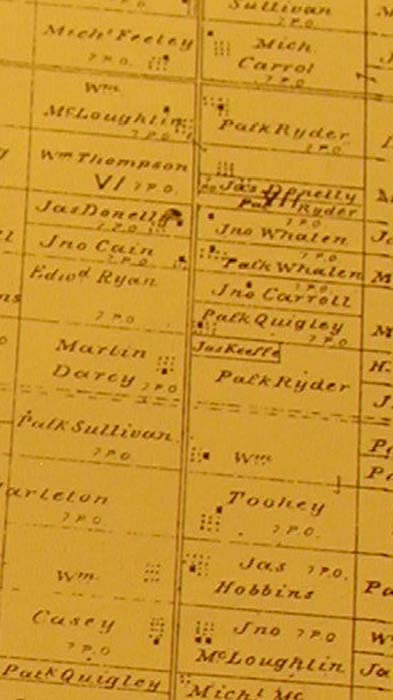 Sullivan
7 P.O.
Mich^l Feeley
7 P.O.
Mich.
Carrol
7 P.O.
Wm
McLoughlin
7 P.O.
Patk Ryder
7 P.O.
Wm Thompson
VI 7 P.O.
Jas Donelly
VII
Patk Ryder
7 P.O.
Jas Donelly
7 P.O.
Jno Whalen
7 P.O.
Jno Cain
7 P.O.
Patk Whalen
7 P.O.
Edwd Ryan
7 P.O.
Jno Carroll
Patk Quigley
7 P.O.
Jas Keeffe
Martin
Darcy 7 P.O.
Patk Ryder
Patk Sullivan
7 P.O.
Wm
Toohey
7 P.O.
arleton
7 P.O.
Jas 7 P.O.
Hobbins
Wm
Casey
7 P.O.
Jno 7 P.O.
McLoughlin
Patk Quigley
Michl Mc